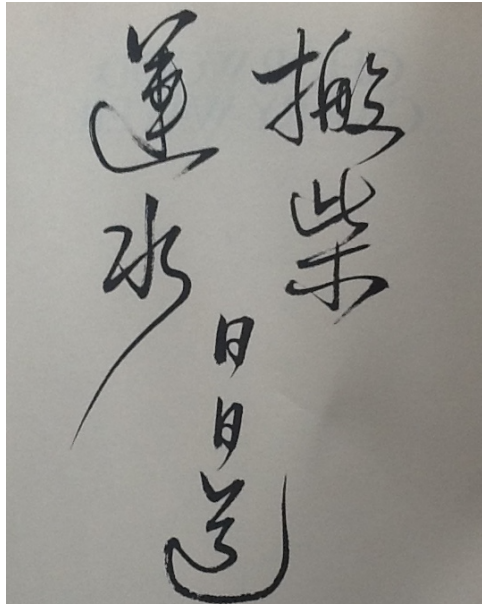 搬柴
運水
日日道